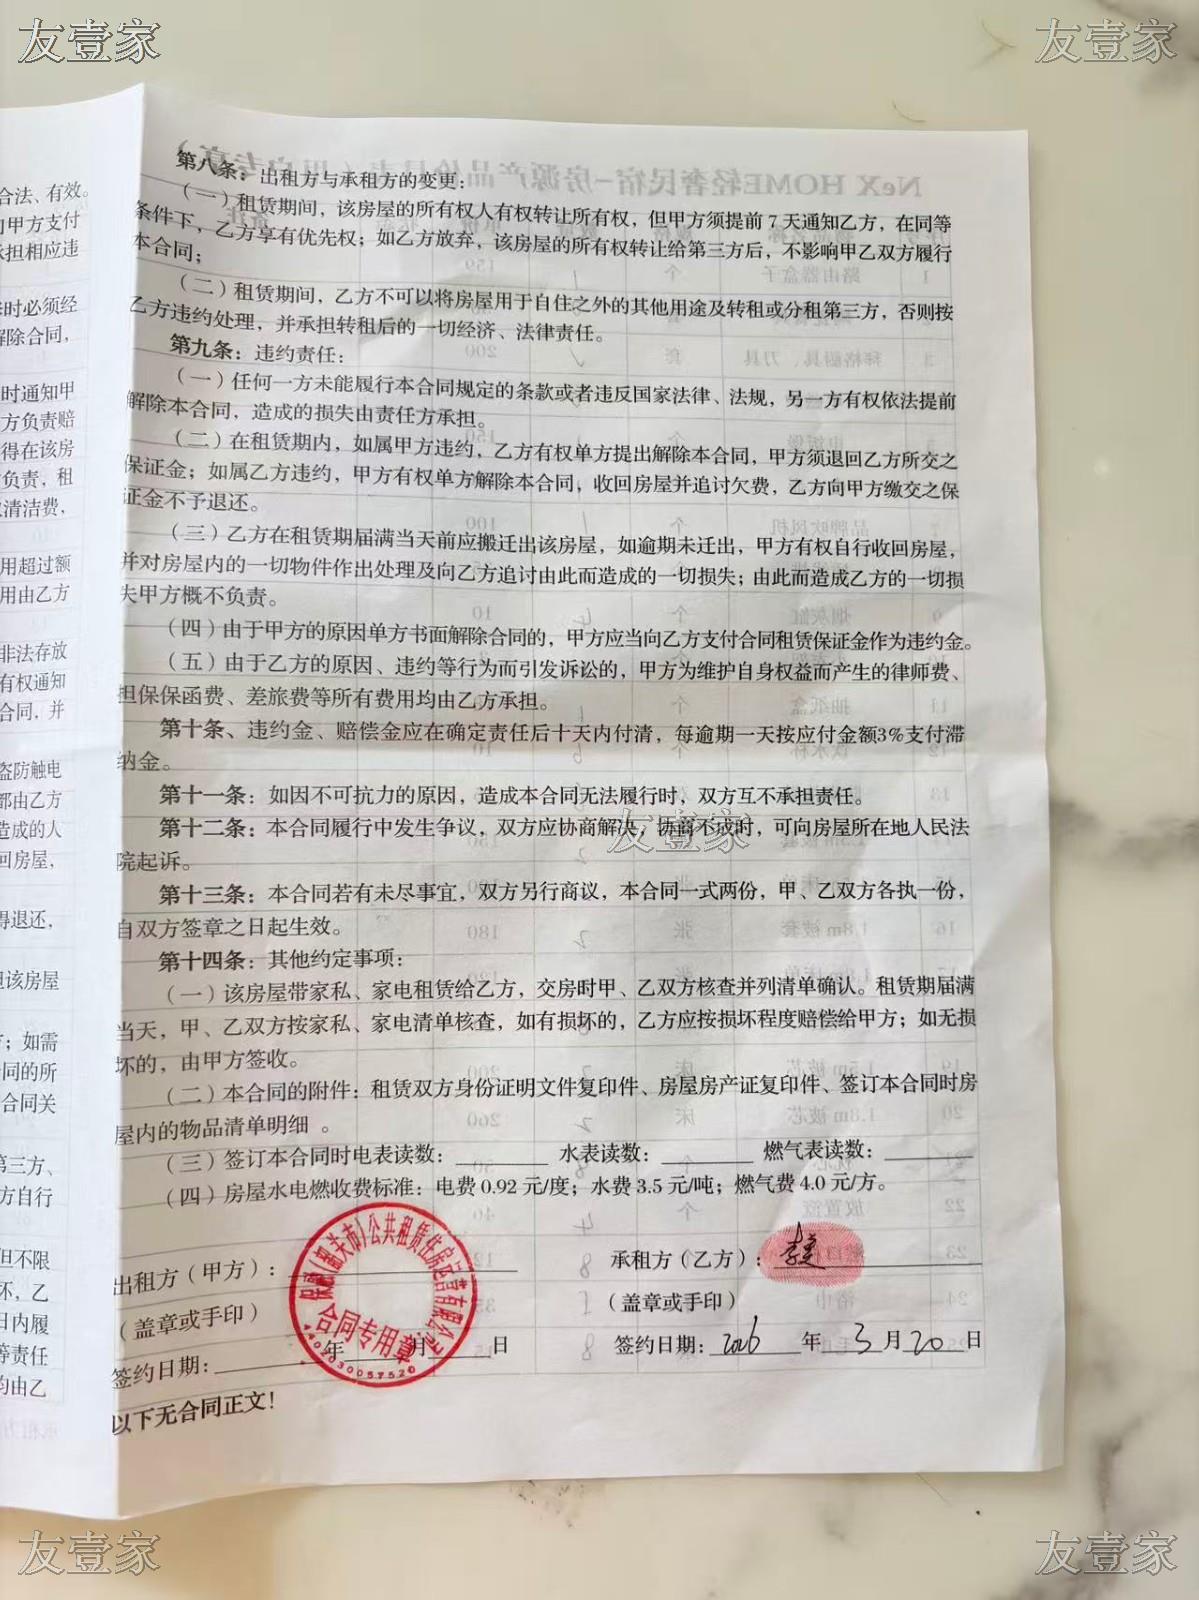 友壹家
友壹家
合法、有效。
甲方支付
承担相应违
时必须经
解除合同，
时通知甲
方负责赔
得在该房
负责，租
清洁费，
用超过额
用由乙方
非法存放
有权通知
合同，并
盗防触电
都由乙方
造成的人
回房屋，
得退还，
该房屋
；如需
同的所
合同关
第三方、
方自行
但不限
坏，乙
日内履
等责任
均由乙
NeX HOME轻奢民宿-房源产品
第八条：出租方与承租方的变更：
（一）租赁期间，该房屋的所有权人有权转让所有权，但甲方须提前 7 天通知乙方，在同等
条件下，乙方享有优先权；如乙方放弃，该房屋的所有权转让给第三方后，不影响甲乙双方履行
本合同；
（二）租赁期间，乙方不可以将房屋用于自住之外的其他用途及转租或分租第三方，否则按
乙方违约处理，并承担转租后的一切经济、法律责任。
第九条：违约责任：
（一）任何一方未能履行本合同规定的条款或者违反国家法律、法规，另一方有权依法提前
解除本合同，造成的损失由责任方承担。
（二）在租赁期内，如属甲方违约，乙方有权单方提出解除本合同，甲方须退回乙方所交之
保证金；如属乙方违约，甲方有权单方解除本合同，收回房屋并追讨欠费，乙方向甲方缴交之保
证金不予退还。
（三）乙方在租赁期届满当天前应搬迁出该房屋，如逾期未迁出，甲方有权自行收回房屋，
并对房屋内的一切物件作出处理及向乙方追讨由此而造成的一切损失；由此而造成乙方的一切损
失甲方概不负责。
（四）由于甲方的原因单方书面解除合同的，甲方应当向乙方支付合同租赁保证金作为违约金。
（五）由于乙方的原因、违约等行为而引发诉讼的，甲方为维护自身权益而产生的律师费、
担保保函费、差旅费等所有费用均由乙方承担。
第十条、违约金、赔偿金应在确定责任后十天内付清，每逾期一天按应付金额3%支付滞
纳金。
第十一条：如因不可抗力的原因，造成本合同无法履行时，双方互不承担责任。
第十二条：本合同履行中发生争议，双方应协商解决，协商不成时，可向房屋所在地人民法
院起诉。
友壹家
第十三条：本合同若有未尽事宜，双方另行商议，本合同一式两份，甲、乙双方各执一份，
自双方签章之日起生效。
第十四条：其他约定事项：
（一）该房屋带家私、家电租赁给乙方，交房时甲、乙双方核查并列清单确认。租赁期届满
当天，甲、乙双方按家私、家电清单核查，如有损坏的，乙方应按损坏程度赔偿给甲方；如无损
坏的，由甲方签收。
（二）本合同的附件：租赁双方身份证明文件复印件、房屋房产证复印件、签订本合同时房
屋内的物品清单明细 。
（三）签订本合同时电表读数：________ 水表读数：________ 燃气表读数：________
（四）房屋水电燃收费标准：电费 0.92 元/度；水费 3.5 元/吨；燃气费 4.0 元/方。
出租方（甲方）：
（盖章或手印）
签约日期：________年____月____日
(韶关市)公共租赁住房运营有限公司
合同专用章
4402030057520
承租方（乙方）：
（盖章或手印）
签约日期：2026 年 3 月 20 日
以下无合同正文！
友壹家
友壹家